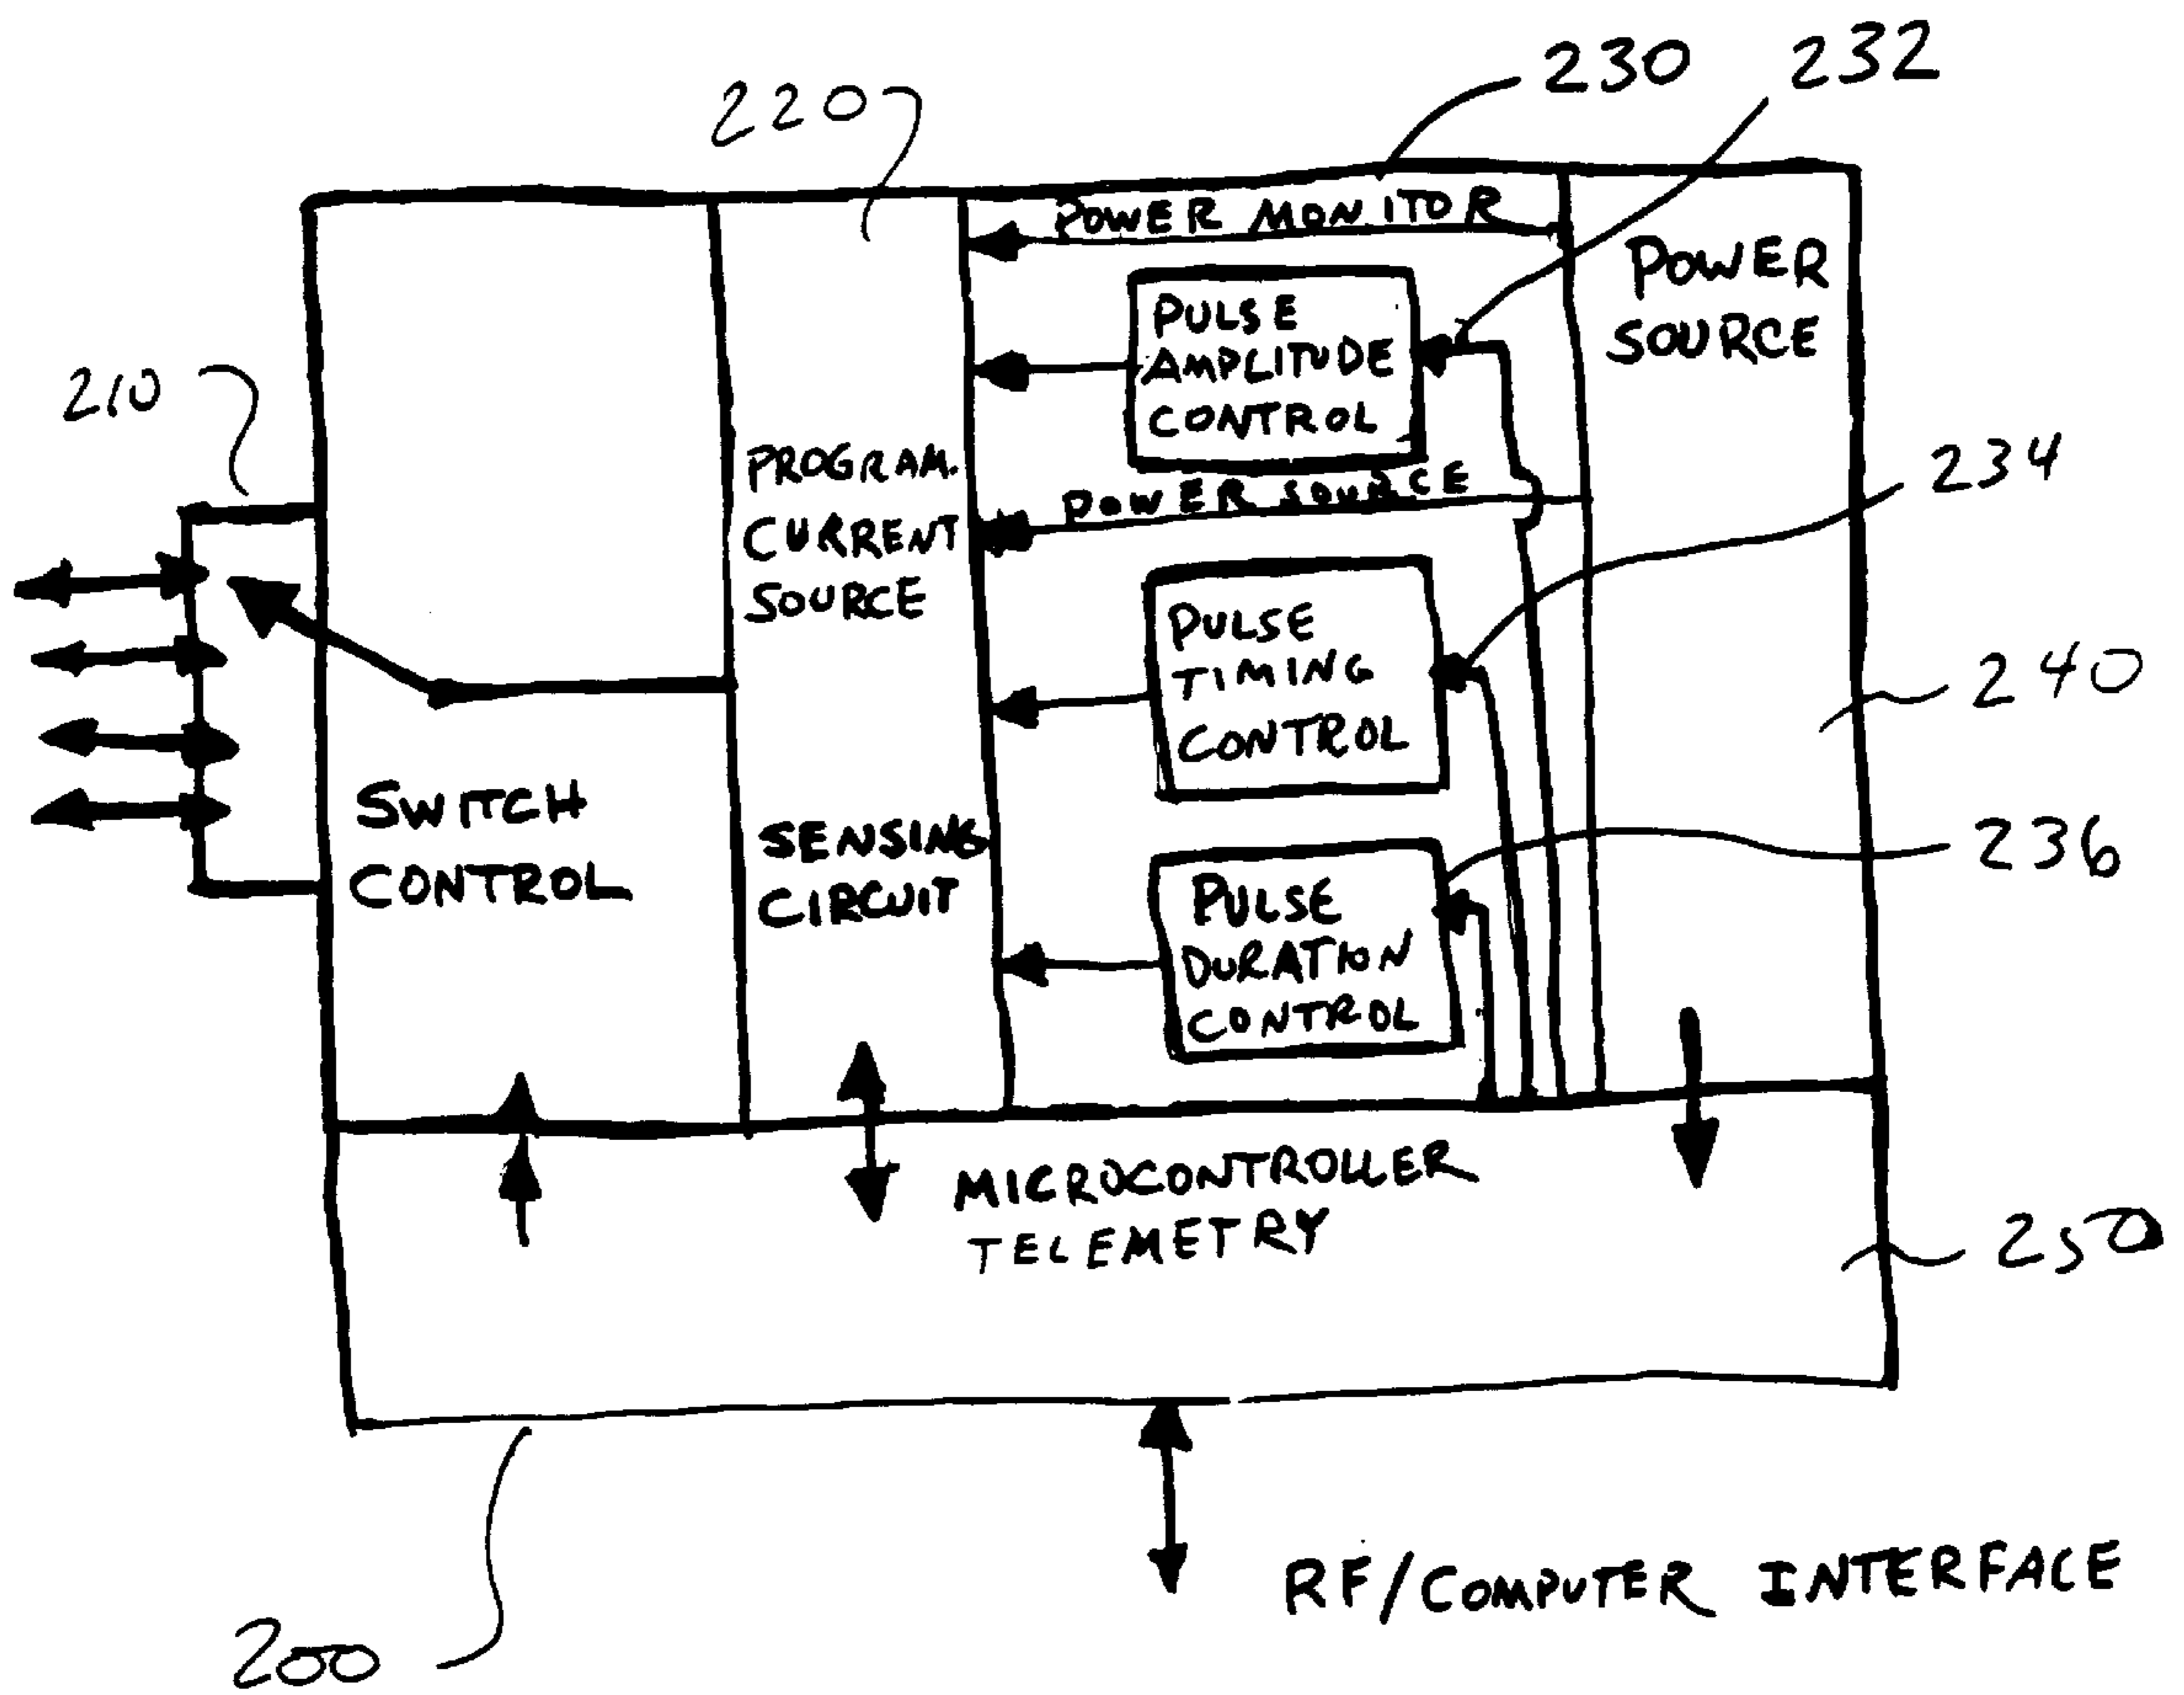 230 232
220
POWER MONITOR
POWER
SOURCE
PULSE
AMPLITUDE
CONTROL
210
PROGRAM.
CURRENT
SOURCE
POWER SOURCE
234
PULSE
TIMING
CONTROL
240
SWITCH
CONTROL
SENSING
CIRCUIT
PULSE
DURATION
CONTROL
236
MICROCONTROLLER
TELEMETRY
250
RF/COMPUTER INTERFACE
200